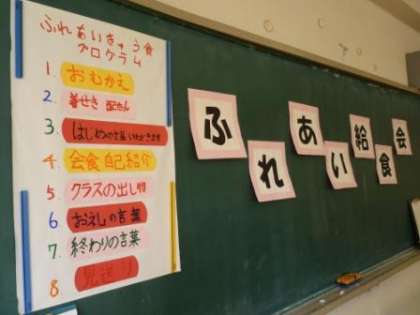 ふれあいきゅう食
プログラム
1 おむかえ
2 着せき 配ぜん
3 はじめの言葉 いただきます
4 会食 自己紹介
5 クラスの出し物
6 お返しの言葉
7 終わりの言葉
8 見送り
ふれあい給食会